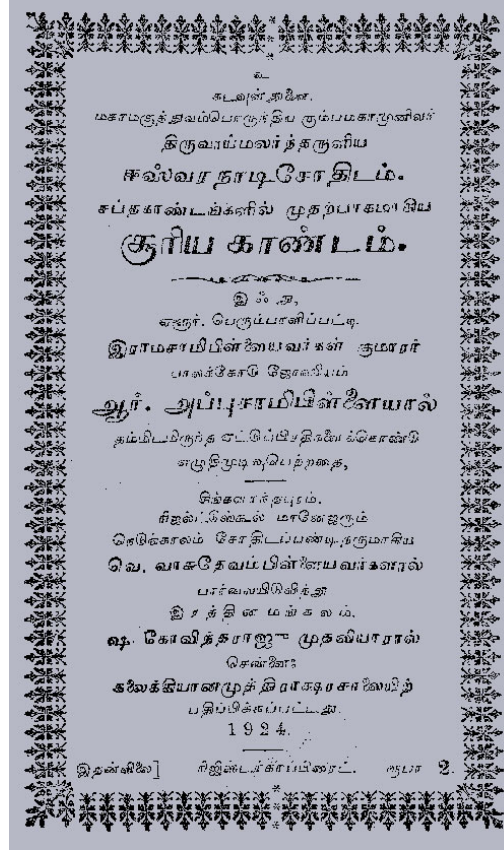 உ
கடவுள் துணை.
மகாமகத்துவம்பொருந்திய ரும்பமகாமுனிவர்
திருவாய்மலர்ந்தருளிய
ஈஸ்வர நாடிசோதிடம்.
சப்தகாண்டங்களில் முதற்பாகமாகிய
சூரிய காண்டம்.
இஃது,
பெரும்பாளிப்பட்டி.
இராமசாமிபிள்ளையவர்கள் குமாரர்
பாலர்கோடு ஜோஸியம்
ஆர். அப்புசாமிபிள்ளையால்
தம்மிடமிருந்த ஏட்டுப்பிரதிகளைக்கொண்டு
எழுதிமுடிவுபெற்றதை,
சிங்களாந்தபுரம்.
மானேஜரும்
நெடுங்காலம் சோதிடப்பண்டிதருமாகிய
வெ. வாசுதேவம்பிள்ளையவர்களால்
பார்வையிடுவித்து
இரத்தினமங்கலம்.
ஷ. கோவிந்தராஜு முதலியாரால்
சென்னை;
கலைக்கியானமுத்திராக்ஷரசாலையிற்
பதிப்பிக்கப்பட்டது.
1924.
இதன்விலை] ரிஜிஸ்டர்காப்பிரைட். ரூபா 2.